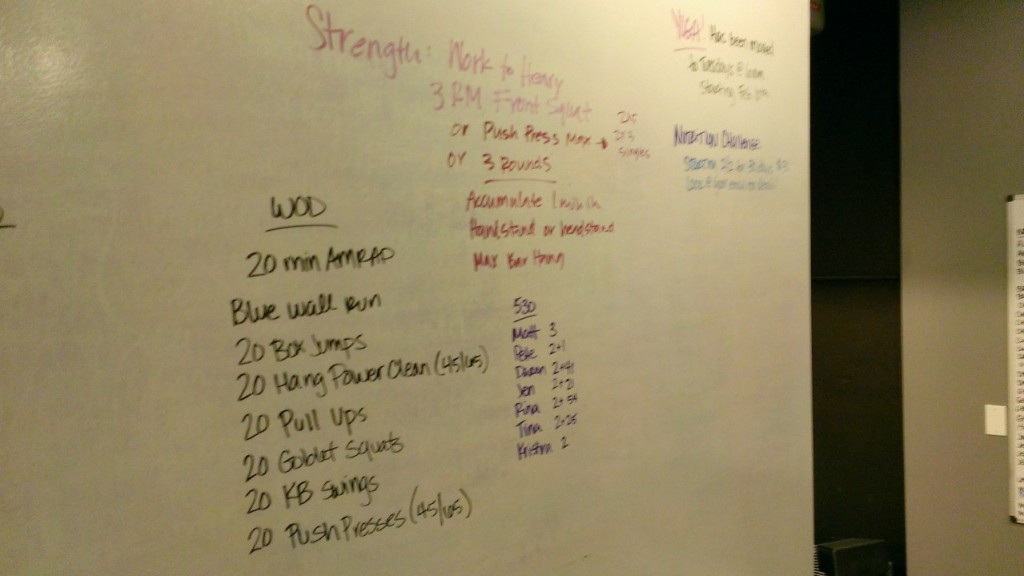 Strength: Work to Heavy
3 RM Front Squat
or Push Press Max → 2x5
2x3
singles
or 3 Rounds
Accumulate 1 min in
Handstand or headstand
Max Bar Hang
YOGA! Has been moved
to Tuesdays @
Starting Feb
Nutrition Challenge
WOD
20 min AMRAP
Blue wall run
20 Box Jumps
20 Hang Power Clean (45/65)
20 Pull Ups
20 Goblet Squats
20 KB Swings
20 Push Presses (45/65)
530
Matt 3
Pete 2+1
2+41
Jen 2+21
Rina 2+54
Tina 2+25
Kristin 2